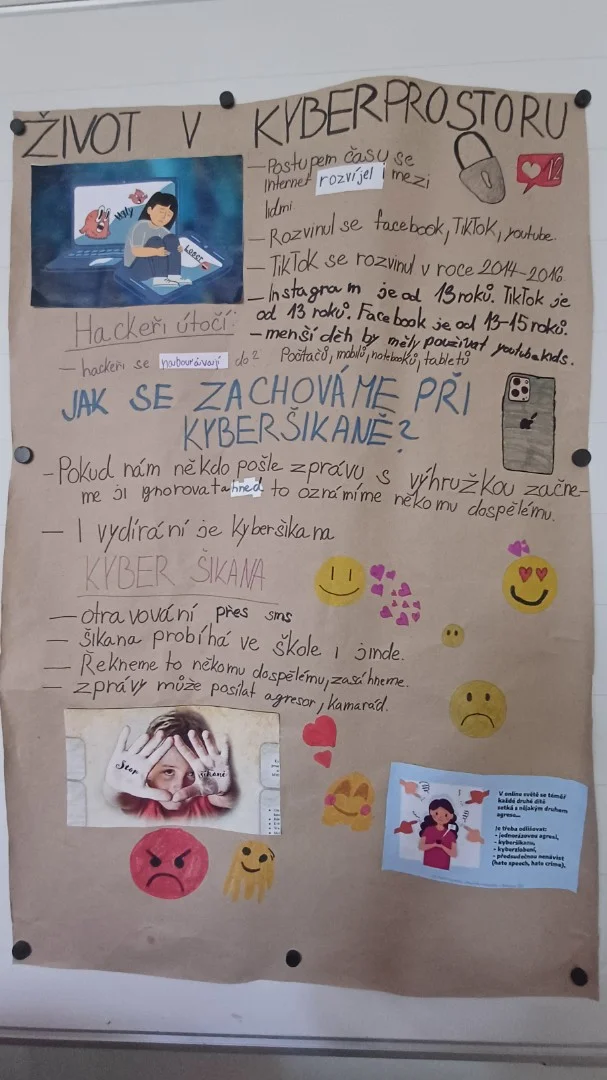 ŽIVOT V KYBERPROSTORU
– Postupem času se
Internet rozvíjel i mezi
lidmi
– Rozvinul se facebook, TikTok, youtube.
– TikTok se rozvinul v roce 2014-2016
– Instagram je od 13 roků. TikTok je
od 13 roků. Facebook je od 13-15 roků.
– menší děti by měly používat youtube kids.
12
Haly
Hackeři útočí:
– hackeři se nabourávají do? Počítačů, mobilů, notebooků, tabletů
JAK SE ZACHOVÁME PŘI
KYBERŠIKANĚ?
– Pokud nám někdo pošle zprávu s výhružkou začne-
me ji ignorovat a hned to oznámíme někomu dospělému.
– I vydírání je kyberšikana
KYBER ŠIKANA
– otravování přes sms
– šikana probíhá ve škole i jinde.
– Řekneme to někomu dospělému, zasáhneme.
– zprávy může posílat agresor, kamarád.
Stop šikaně
V online světě se téměř
každé druhé dítě
setká s nějakým druhem
agrese...
Je třeba odlišovat:
- jednorázovou agresi,
- kyberšikanu,
- kyberzlobení,
- předsudečnou nenávist
(hate speech, hate crime).